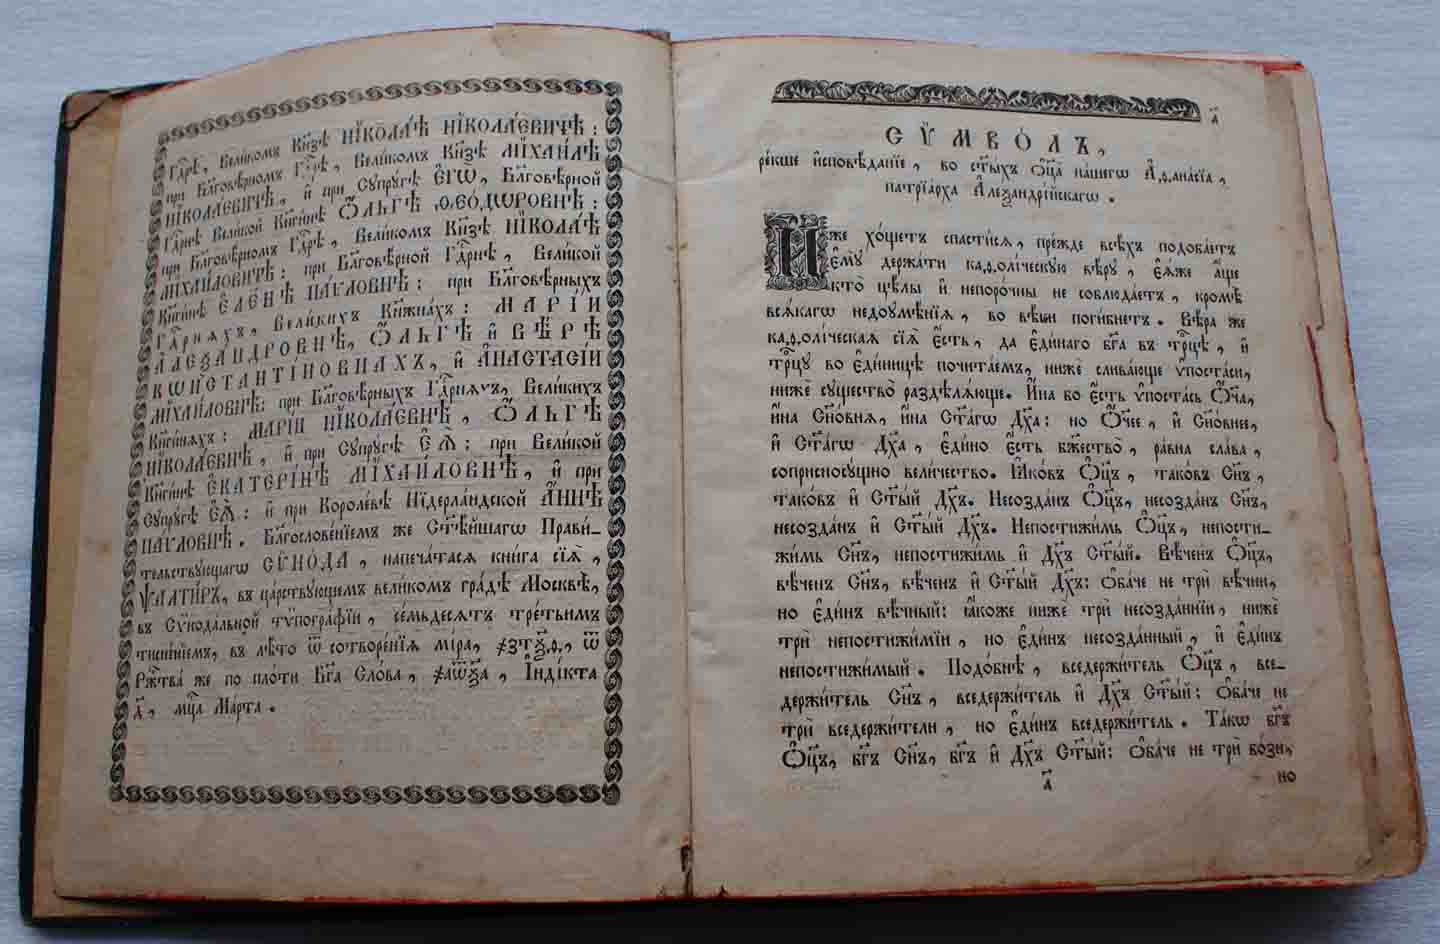 Гдⷭ҇рѣ, Вели́комъ Кн҃зѣ НІКОЛА́Ѣ НІКОЛА́ЕВИЧѢ :
при Бл҃говѣ́рномъ Гдⷭ҇рѣ, Вели́комъ Кн҃зѣ МІХАИ́ЛѢ
НІКОЛА́ЕВИЧѢ, и҆ при Сꙋпрꙋ́гѣ Є҆ГѠ̀, Бл҃говѣ́рной
Гдⷭ҇рнѣ Вели́кой Кн҃ги́нѣ Ѻ҆́ЛЬГѢ ѲЕѠ́ДѠРОВНѢ :
при Бл҃говѣ́рномъ Гдⷭ҇рѣ, Вели́комъ Кн҃зѣ НІКОЛА́Ѣ
МІХАИ́ЛОВИЧѢ : при Бл҃говѣ́рной Гдⷭ҇рнѣ, Вели́кой
Кн҃ги́нѣ Є҆ЛЕ́НѢ ПА́ѴЛОВНѢ : при Бл҃говѣ́рныхъ
Гдⷭ҇рнѧхъ, Вели́кихъ Кн҃жна́хъ : МАРІ́И
А҆ЛЕѮА́НДРОВНѢ, Ѻ҆́ЛЬГѢ и҆ ВѢ́РѢ
КѠНСТАНТІ́НОВНАХЪ, и҆ А҆НАСТАСІ́И
МІХАИ́ЛОВНѢ : при Бл҃говѣ́рныхъ Гдⷭ҇рнѧхъ, Вели́кихъ
Кн҃ги́нѧхъ : МАРІ́И НІКОЛА́ЕВНѢ, Ѻ҆́ЛЬГѢ
НІКОЛА́ЕВНѢ, и҆ при Сꙋпрꙋ́гѣ Є҆Ѧ̀ : при Вели́кой
Кн҃ги́нѣ Є҆КАТЕРІ́НѢ МІХАИ́ЛОВНѢ, и҆ при
Сꙋпрꙋ́гѣ Є҆Ѧ̀ : и҆ при Короле́вѣ Нідерла́ндской А҆́ННѢ
ПА́ѴЛОВНѢ . Бл҃гослове́нїемъ же Ст҃ѣ́йшагѡ Прави́-
тельствꙋющагѡ СѴНО́ДА, напеча́тасѧ кни́га сїѧ̀,
ѰАЛТИ́РЬ, въ ца́рствꙋющемъ вели́комъ гра́дѣ Москвѣ̀,
въ Сѵнода́льной тѵпогра́фїи, се́мьдесѧтъ тре́тьимъ
тисне́нїемъ, въ лѣ́то ѿ сотворе́нїѧ мі́ра, ҂зтѯѳ, ѿ
Ржⷭ҇тва̀ же по пло́ти Бг҃а Сло́ва, ҂аѡѯа, І҆нді́кта
д҃, мцⷭ҇а Ма́рта .
а҃
СѴ́МВОЛЪ,
ре́кше и҆сповѣ́данїе, во ст҃ы́хъ ѻ҆ц҃а̀ на́шегѡ А҆ѳана́сїа,
патрїа́рха А҆леѯандрі́йскагѡ .
И҆́же хо́щетъ спасти́сѧ, пре́жде всѣ́хъ подоба́етъ
є҆мꙋ̀ держа́ти каѳоли́ческꙋю вѣ́рꙋ, є҆ѧ́же а҆́ще
кто̀ цѣ́лы и҆ непоро́чны не соблюда́етъ, кромѣ̀
всѧ́кагѡ недоꙋмѣ́нїѧ, во вѣ́ки поги́бнетъ . Вѣ́ра же
каѳоли́ческаѧ сїѧ̀ є҆́сть, да є҆ди́наго бг҃а въ трⷪ҇цѣ, и҆
трⷪ҇цꙋ во є҆ди́ницѣ почита́емъ, нижѐ слива́юще ѵ҆поста́си,
нижѐ сꙋщество̀ раздѣлѧ́юще . И҆́на бо є҆́сть ѵ҆поста́сь Ѻ҆́ч҃а,
и҆́на Сн҃о́внѧ, и҆́на Ст҃а́гѡ Дх҃а : но Ѻ҆́ч҃ее, и҆ Сн҃о́внее,
и҆ Ст҃а́гѡ Дх҃а, є҆ди́но є҆́сть бж҃ество̀, ра́вна сла́ва,
соприсносꙋ́щно вели́чество . Ꙗ҆ко́въ Ѻ҆ц҃ъ, тако́въ Сн҃ъ,
тако́въ и҆ Ст҃ы́й Дх҃ъ . Несозда́нъ Ѻ҆ц҃ъ, несозда́нъ Сн҃ъ,
несозда́нъ и҆ Ст҃ы́й Дх҃ъ . Непостижи́мь Ѻ҆ц҃ъ, непости-
жи́мь Сн҃ъ, непостижи́мь и҆ Дх҃ъ Ст҃ы́й . Вѣ́ченъ Ѻ҆ц҃ъ,
вѣ́ченъ Сн҃ъ, вѣ́ченъ и҆ Ст҃ы́й Дх҃ъ : ѻ҆ба́че не трѝ вѣ́чни,
но є҆ди́нъ вѣ́чный : ꙗ҆́коже нижѐ трѝ несозда́ннїи, нижѐ
трѝ непостижи́мїи, но є҆ди́нъ несозда́нный, и҆ є҆ди́нъ
непостижи́мый . Подо́бнѣ, вседержи́тель Ѻ҆ц҃ъ, все-
держи́тель Сн҃ъ, вседержи́тель и҆ Дх҃ъ Ст҃ы́й : ѻ҆ба́че не
трѝ вседержи́тели, но є҆ди́нъ вседержи́тель . Та́кѡ бг҃ъ
Ѻ҆ц҃ъ, бг҃ъ Сн҃ъ, бг҃ъ и҆ Дх҃ъ Ст҃ы́й : ѻ҆ба́че не трѝ бо́зи,
а҃ но